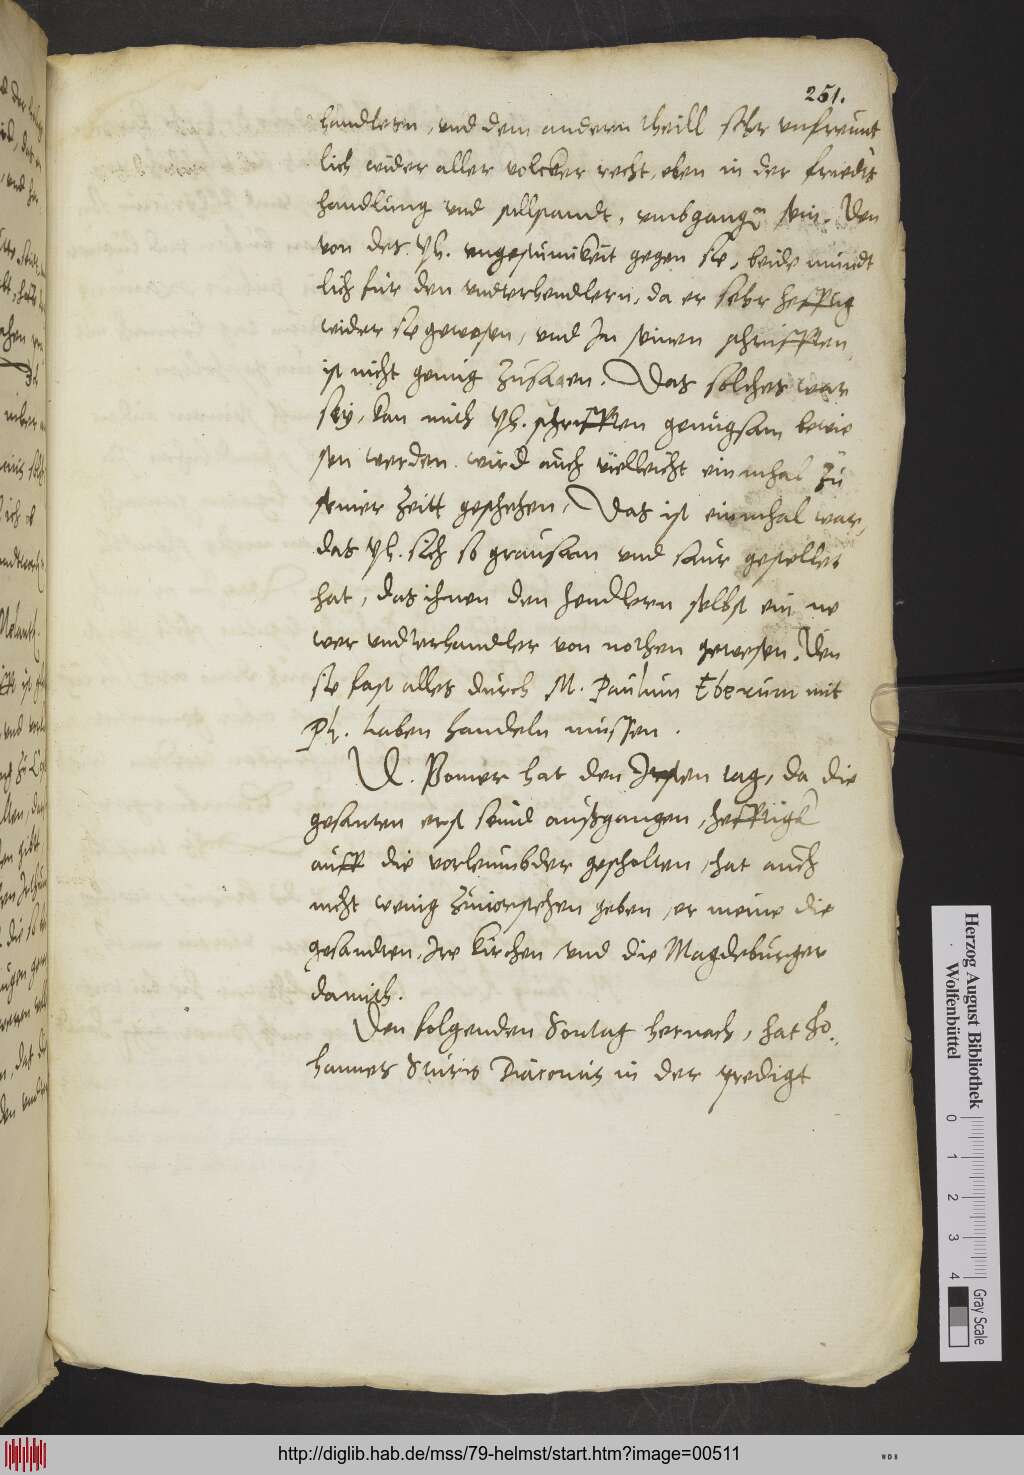 251.
handlern, und dem andern theill sehr unfreunt
lich wider aller volcker recht, eben in der friedts
handlung und stillstandt, umbgangen sein. Den
von des Ph. ungestumikeit gegen sie, beide mundt
lich fur den underhendlern, da er sehr hefftig
wider sie gewesen, und In seinen schrifften
ist nicht genug zusagen. Das solches war
sey, kan mitt Ph. schrifften genugsam bewie
sen werden. wird auch vielleicht ein mhal zu
seiner zeitt geschehen, Das ist ein mhal war,
das Ph. sich so grausam und saur gestellet
hat, das ihnen den hendlern selbst ein ne
wer underhandler von nothen gewesen. Den
sie fast alles durch M. Paulum Eberum mit
Ph. haben handeln mussen.
D. Pomer hat den Ersten tag, da die
gesanten erst seind außgangen, hefftigk
auff die vorleumbder gescholten, hat auch
nicht wenig zuvorstehen geben, er meine die
gesandten, Ire kirchen und die Magdeburger
damith.
Den folgenden Sontag hernach, hat Jo-
hannes Sturio Diaconus in der predigt
Herzog August Bibliothek
Wolfenbüttel
0 1 2 3 4
Gray Scale
http://diglib.hab.de/mss/79-helmst/start.htm?image=00511